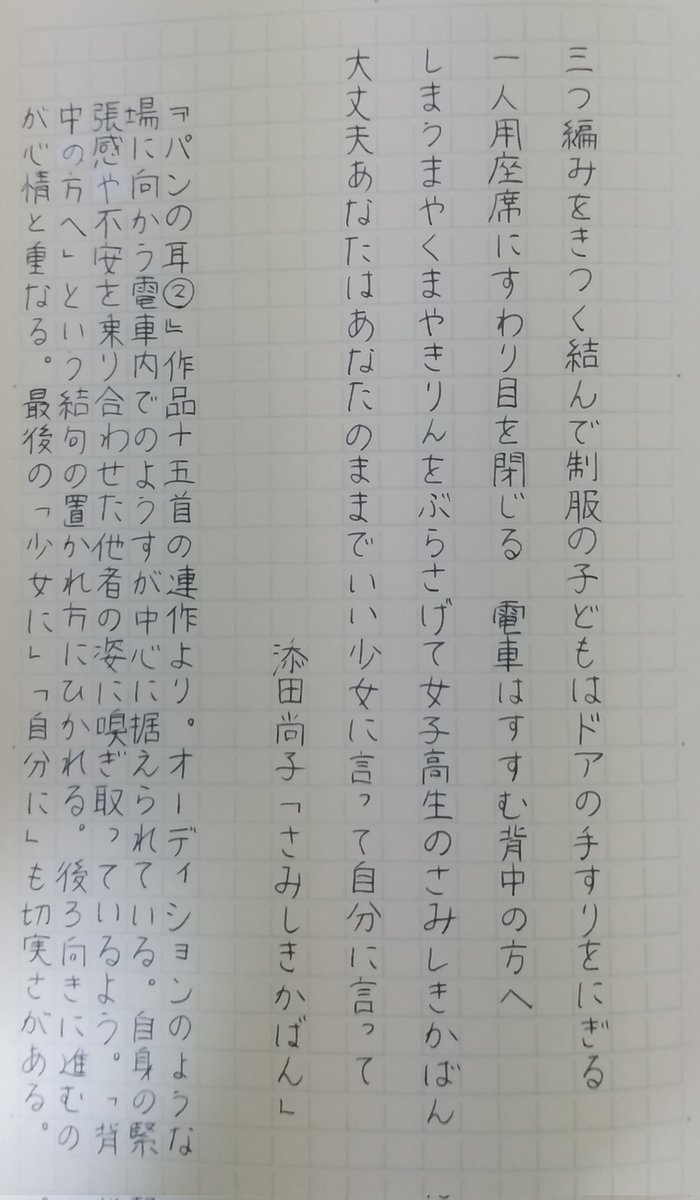 三つ編みをきつく結んで制服の子どもはドアの手すりをにぎる
一人用座席にすわり目を閉じる　電車はすすむ背中の方へ
しまうまやくまやきりんをぶらさげて女子高生のさみしきかばん
大丈夫あなたはあなたのままでいい少女に言って自分に言って
添田尚子「さみしきかばん」
『パンの耳②』作品十五首の連作より。オーディションのような
場に向かう電車内でのようすが中心に据えられている。自身の緊
張感や不安を乗り合わせた他者の姿に嗅ぎ取っているよう。「背
中の方へ」という結句の置かれ方にひかれる。後ろ向きに進むの
が心情と重なる。最後の「少女に」「自分に」も切実さがある。